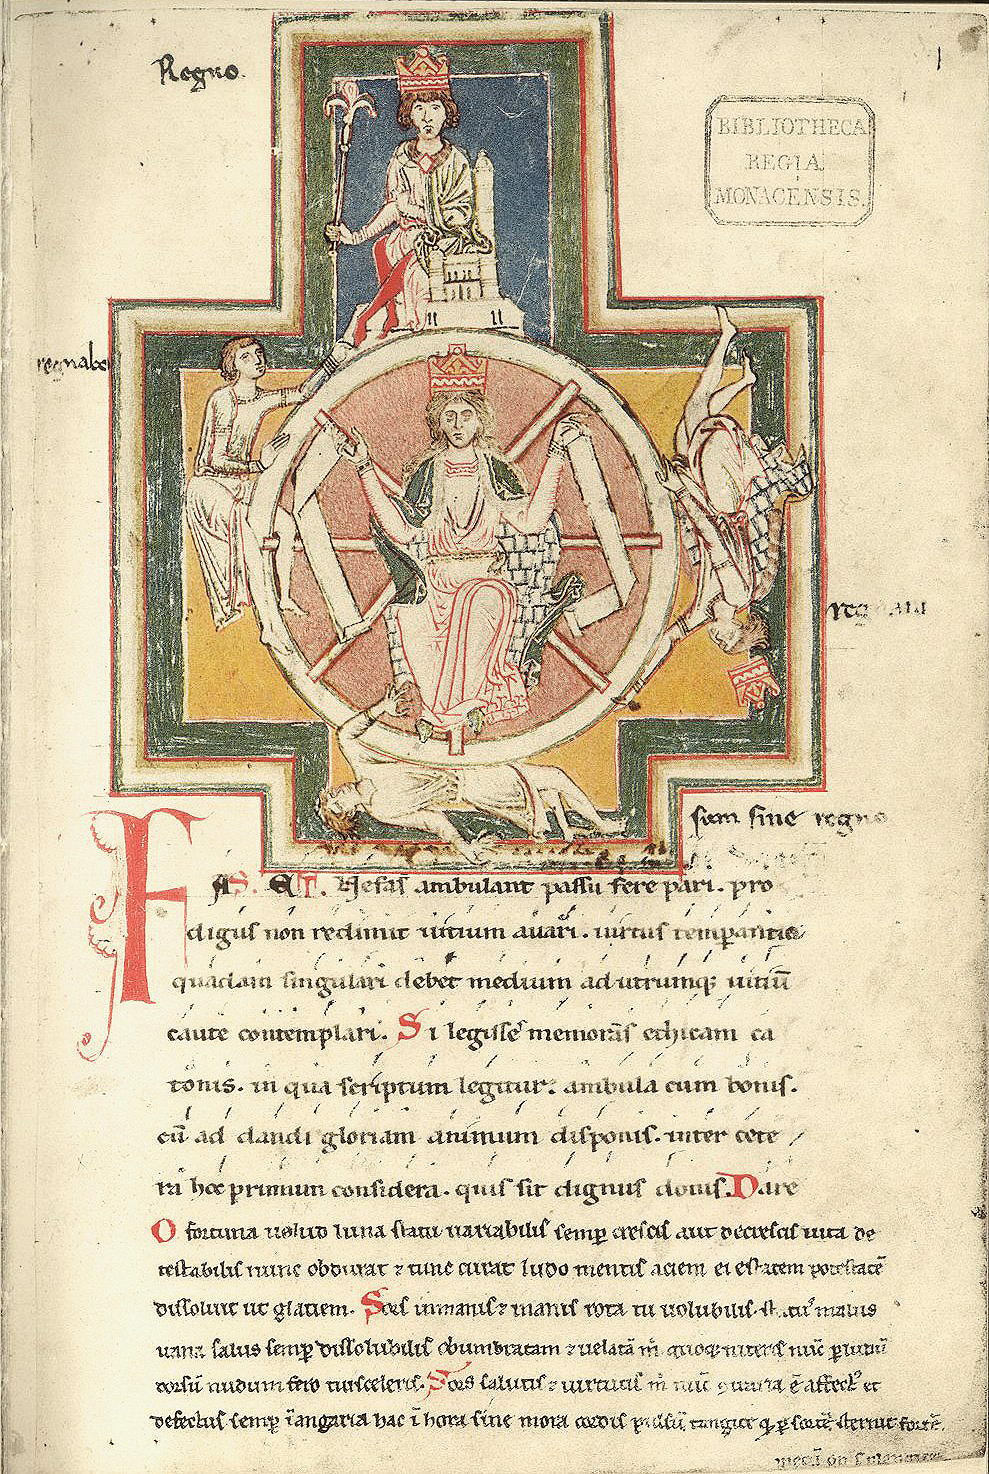 Regno
BIBLIOTHECA
REGIA
MONACENSIS.
regnabo
sum sine regno
FAS. ET. Nefas ambulant passu fere pari. pro
digus non redimit uitium auari. uirtus temperantia
quadam singulari debet medium ad utrumq; uitiū
caute contemplari. Si legisse memoras ethicam ca
tonis. in qua scriptum legitur. ambula cum bonis.
cū ad dandi gloriam animum disponis. inter cete
ra hoc primum considera. quis sit dignus donis. Dare
O fortuna uelud luna statu uariabilis semp crescis aut decrescis uita de
testabilis nunc obdurat & tunc curat ludo mentis aciem egestatem potestatē
dissoluit ut glaciem. Sors inmanis & inanis rota tu uolubilis statuˢ malus
uana salus semp dissolubilis obumbratam & uelatā m̄ quoq; niteris nūc p ludū
dorsū nudum fero tui sceleris. Sors salutis & uirtutis m̄ nūc 9traria ē affectˢ et
defectus semp ī angaria hac ī hora sine mora cordis pulsū tangite q p sortē sternit fortē